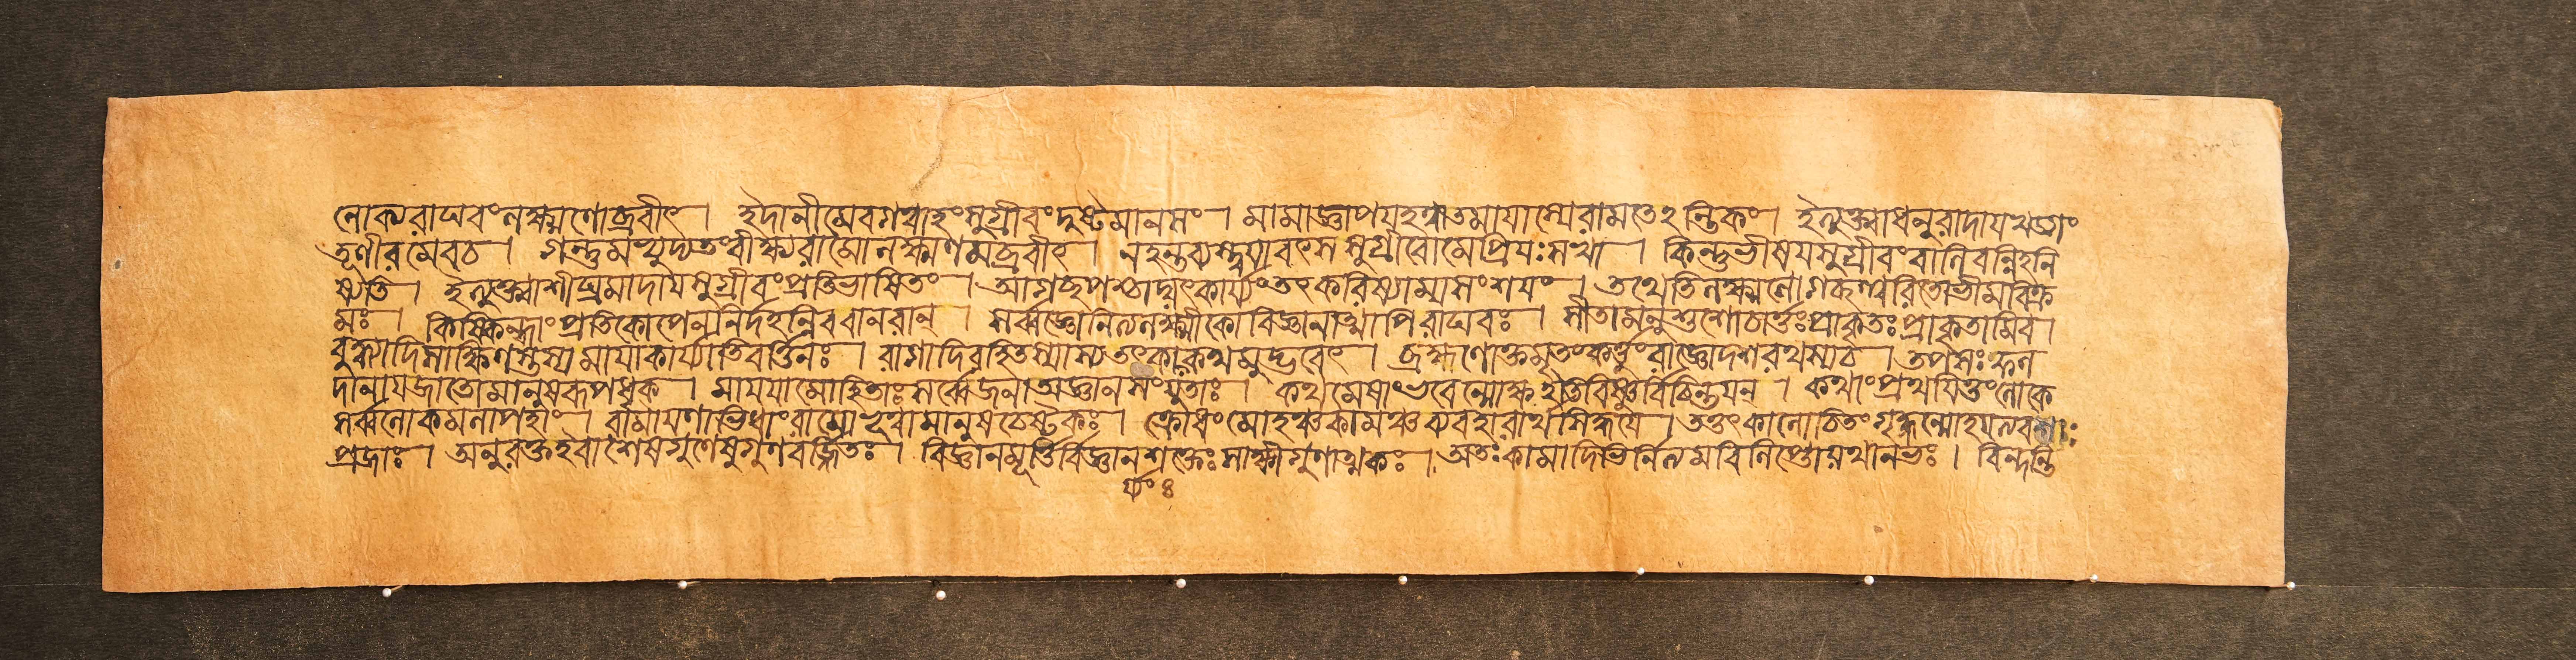 লোক্যরাঘবংলক্ষ্মণোব্রবীৎ। ইদানীমেবগত্বাহংসুগ্রীবংদুষ্টমানসং। মামাজ্ঞাপয়হত্বাতমায়াস্যেরামতেহন্তিকং। ইত্যুক্ত্বাধনুরাদায়খড়্গং
তূণীরমেবচ। গন্তুমভ্যুদ্যতংবীক্ষ্যরামোলক্ষ্মণমব্রবীৎ। নহন্তব্যস্ত্বয়াবৎসসুগ্রীবোমেপ্রিয়ঃসখা। কিন্তুভীষয়সুগ্রীবংবালিবন্নিহনি
ষ্যতি। ইত্যুক্ত্বাশীঘ্রমাদায়সুগ্রীবংপ্রতিভাষিতং। আগত্যপশ্চাদ্যৎকার্য্যংতৎকরিষ্যাম্যসংশয়ং। তথেতিলক্ষ্মণোগচ্ছত্ত্বরিতোভীমবিক্র
মঃ। কিষ্কিন্ধাংপ্রতিকোপেননির্দহন্নিববানরান্। সর্ব্বজ্ঞোনিত্যলক্ষ্মীকোবিজ্ঞানাত্মাপিরাঘবঃ। সীতামনুশুশোচার্ত্তঃপ্রাকৃতঃপ্রাকৃতামিব।
বুদ্ধ্যাদিসাক্ষিণস্তস্যমায়াকার্য্যাতিবর্ত্তিনঃ। রাগাদিরহিতস্যাস্যতৎকার্য্যংকথমুদ্ভবেৎ। ব্রহ্মণোক্তমৃতংকর্ত্তুংরাজ্ঞোদশরথস্যচ। তপসঃফল
দানায়জাতোমানুষরূপধৃক। মায়য়ামোহিতাঃসর্ব্বেজনাঅজ্ঞানসংযুতাঃ। কথমেষাংভবেন্মোক্ষইতিবিষ্ণুর্বিচিন্তয়ন্। কথাংপ্রথয়িতুংলোকে
সর্ব্বলোকমলাপহাং। রামায়ণাভিধাংরামোভূত্বামানুষচেষ্টকঃ। ক্রোধংমোহঞ্চকামঞ্চব্যবহারার্থসিদ্ধয়ে। তত্তৎকালোচিতংগৃহ্ণন্মোহয়ত্যবশাঃ
প্রজাঃ। অনুরক্তইবাশেষগুণেষুগুণবর্জ্জিতঃ। বিজ্ঞানমূর্ত্তির্বিজ্ঞানশক্তিঃসাক্ষ্যগুণাত্মকঃ। অতঃকামাদিভির্নিত্যমবিলিপ্তোযথানভঃ। বিন্দন্তি